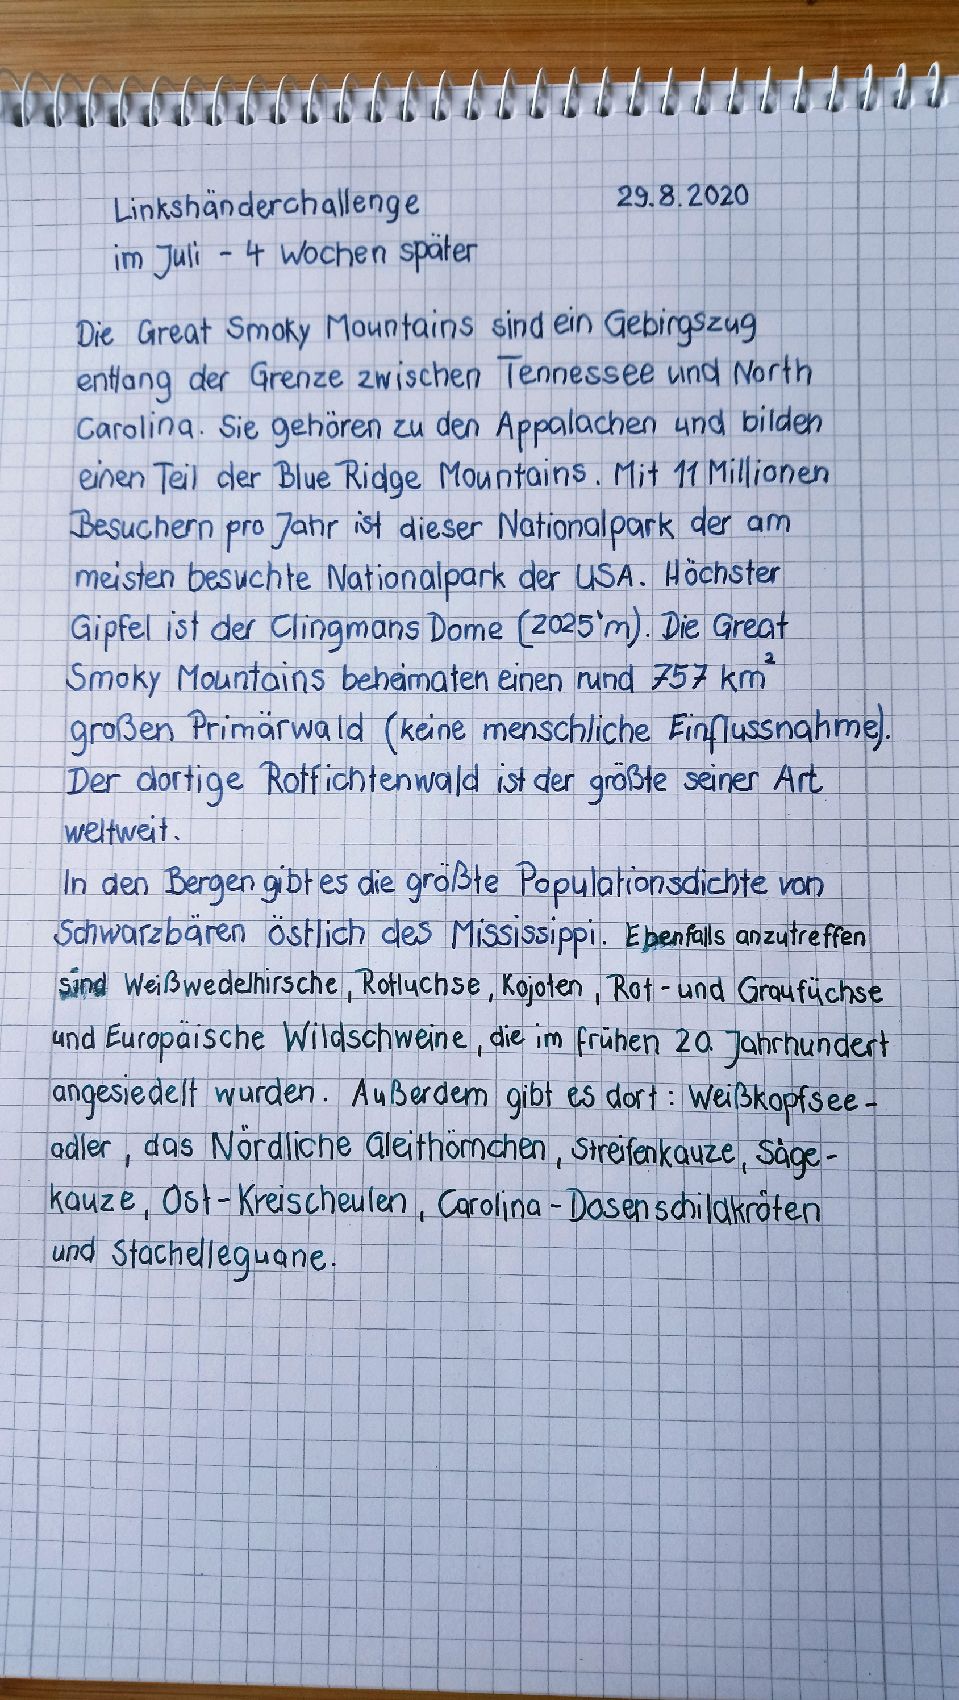 Linkshänderchallenge 29.8.2020
im Juli - 4 Wochen später
Die Great Smoky Mountains sind ein Gebirgszug
entlang der Grenze zwischen Tennessee und North
Carolina. Sie gehören zu den Appalachen und bilden
einen Teil der Blue Ridge Mountains. Mit 11 Millionen
Besuchern pro Jahr ist dieser Nationalpark der am
meisten besuchte Nationalpark der USA. Höchster
Gipfel ist der Clingmans Dome (2025'm). Die Great
Smoky Mountains beheimaten einen rund 757 km²
großen Primärwald (keine menschliche Einflussnahme).
Der dortige Rotfichtenwald ist der größte seiner Art
weltweit.
In den Bergen gibt es die größte Populationsdichte von
Schwarzbären östlich des Mississippi. Ebenfalls anzutreffen
sind Weißwedelhirsche, Rotluchse, Kojoten, Rot- und Graufüchse
und Europäische Wildschweine, die im frühen 20. Jahrhundert
angesiedelt wurden. Außerdem gibt es dort: Weißkopfsee-
adler, das Nördliche Gleithörnchen, Streifenkauze, Säge-
kauze, Ost-Kreischeulen, Carolina-Dosenschildkröten
und Stachelleguane.